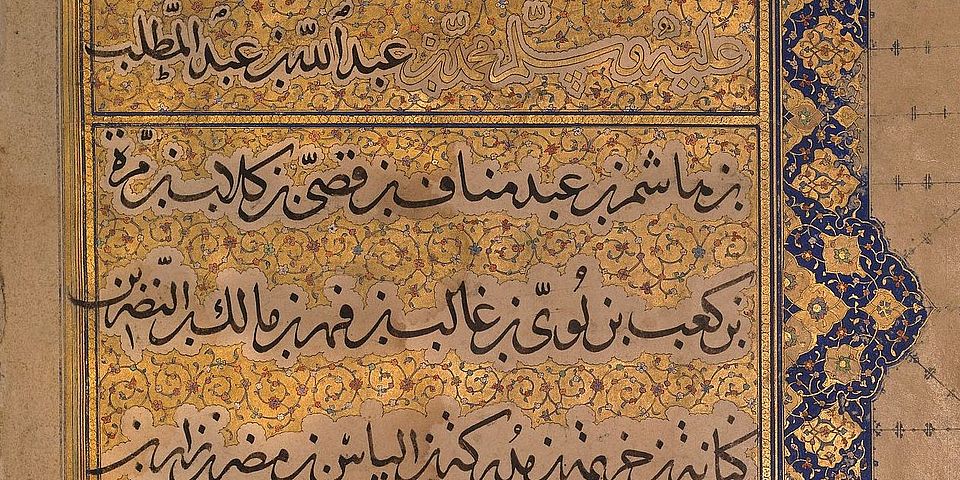 عليه وسلم محمد بن عبد الله بن عبد المطلب
بن هاشم بن عبد مناف بن قصيّ بن كلاب بن مرّة
بن كعب بن لُويّ بن غالب بن فهر بن مالك بن النضر بن
كنانة بن خزيمة بن مُدركة بن الياس بن مضر بن نزار بن